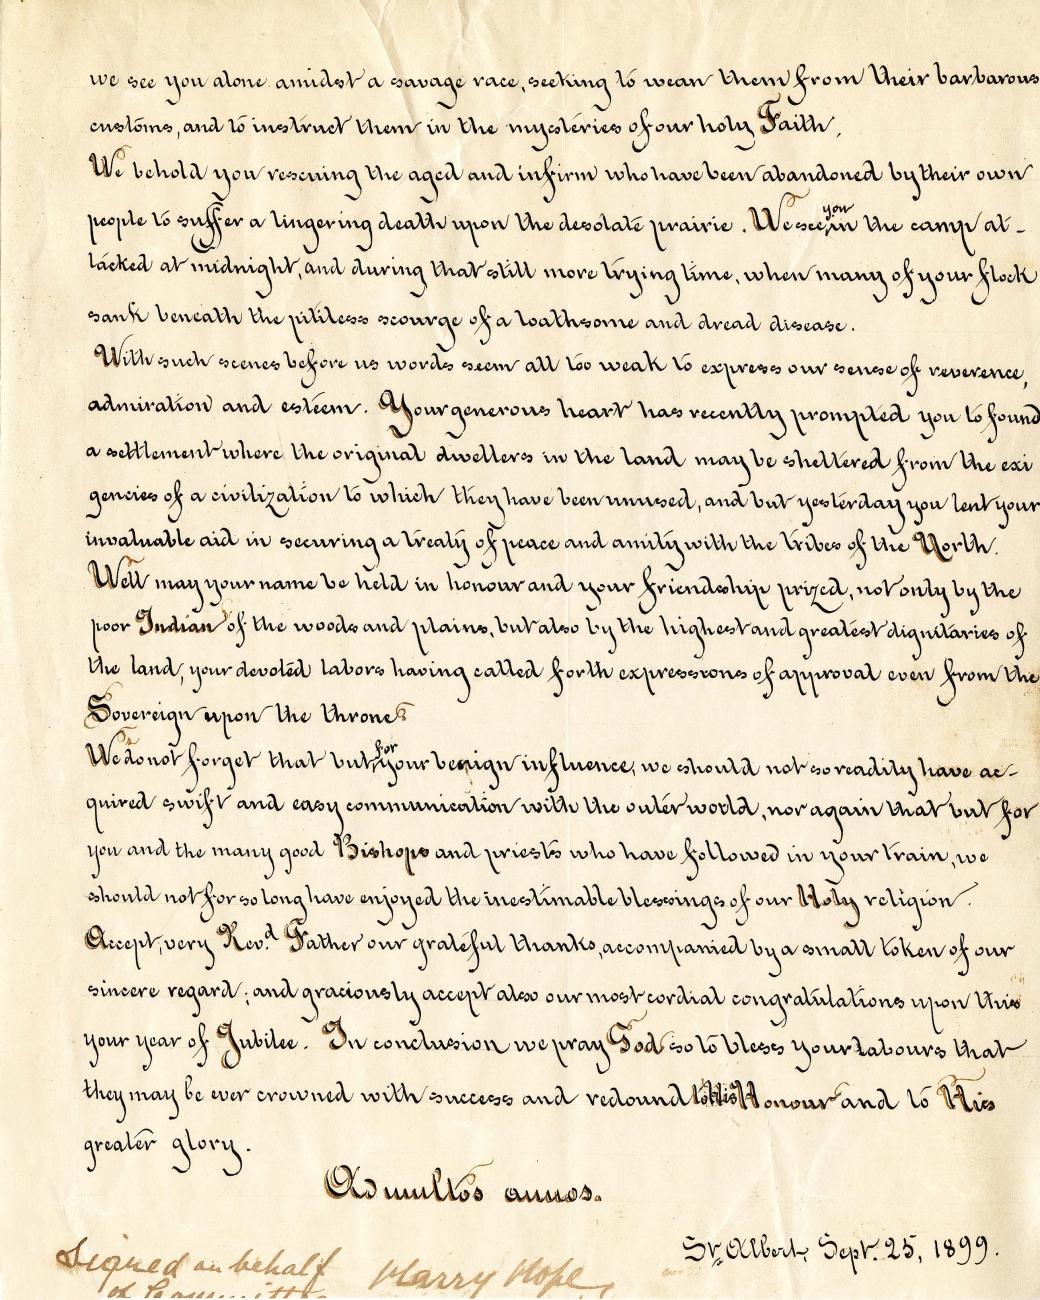 we see you alone amidst a savage race, seeking to wean them from their barbarous
customs, and to instruct them in the mysteries of our holy Faith.
We behold you rescuing the aged and infirm who have been abandoned by their own
people to suffer a lingering death upon the desolate prairie. We see you in the camp at-
tacked at midnight, and during that still more trying time, when many of your flock
sank beneath the pitiless scourge of a loathsome and dread disease.
With such scenes before us words seem all too weak to express our sense of reverence,
admiration and esteem. Your generous heart has recently prompted you to found
a settlement where the original dwellers in the land may be sheltered from the exi
gencies of a civilization to which they have been unused, and but yesterday you lent your
invaluable aid in securing a treaty of peace and amity with the tribes of the North.
Well may your name be held in honour and your friendship prized, not only by the
poor Indian of the woods and plains, but also by the highest and greatest dignitaries of
the land, your devoted labors having called forth expressions of approval even from the
Sovereign upon the throne
We do not forget that but for your benign influence, we should not so readily have ac-
quired swift and easy communication with the outer world, nor again that but for
you and the many good Bishops and priests who have followed in your train, we
should not for so long have enjoyed the inestimable blessings of our Holy religion.
Accept, very Rev.d Father our grateful thanks, accompanied by a small token of our
sincere regard; and graciously accept also our most cordial congratulations upon this
your year of Jubilee. In conclusion we pray God so to bless your labours that
they may be ever crowned with success and redound to His Honour and to His
greater glory.
Ad multos annos.
St. Albert, Sept. 25, 1899.
Signed on behalf Harry Hope
of Committee